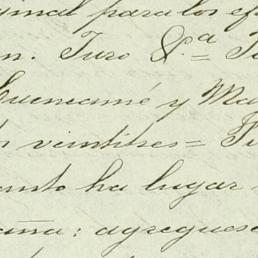 ginal para los ef
n. Juro &.ª = J
Cuencamé y Ma
veintitres =
anto ha lugar
aña: agreguese